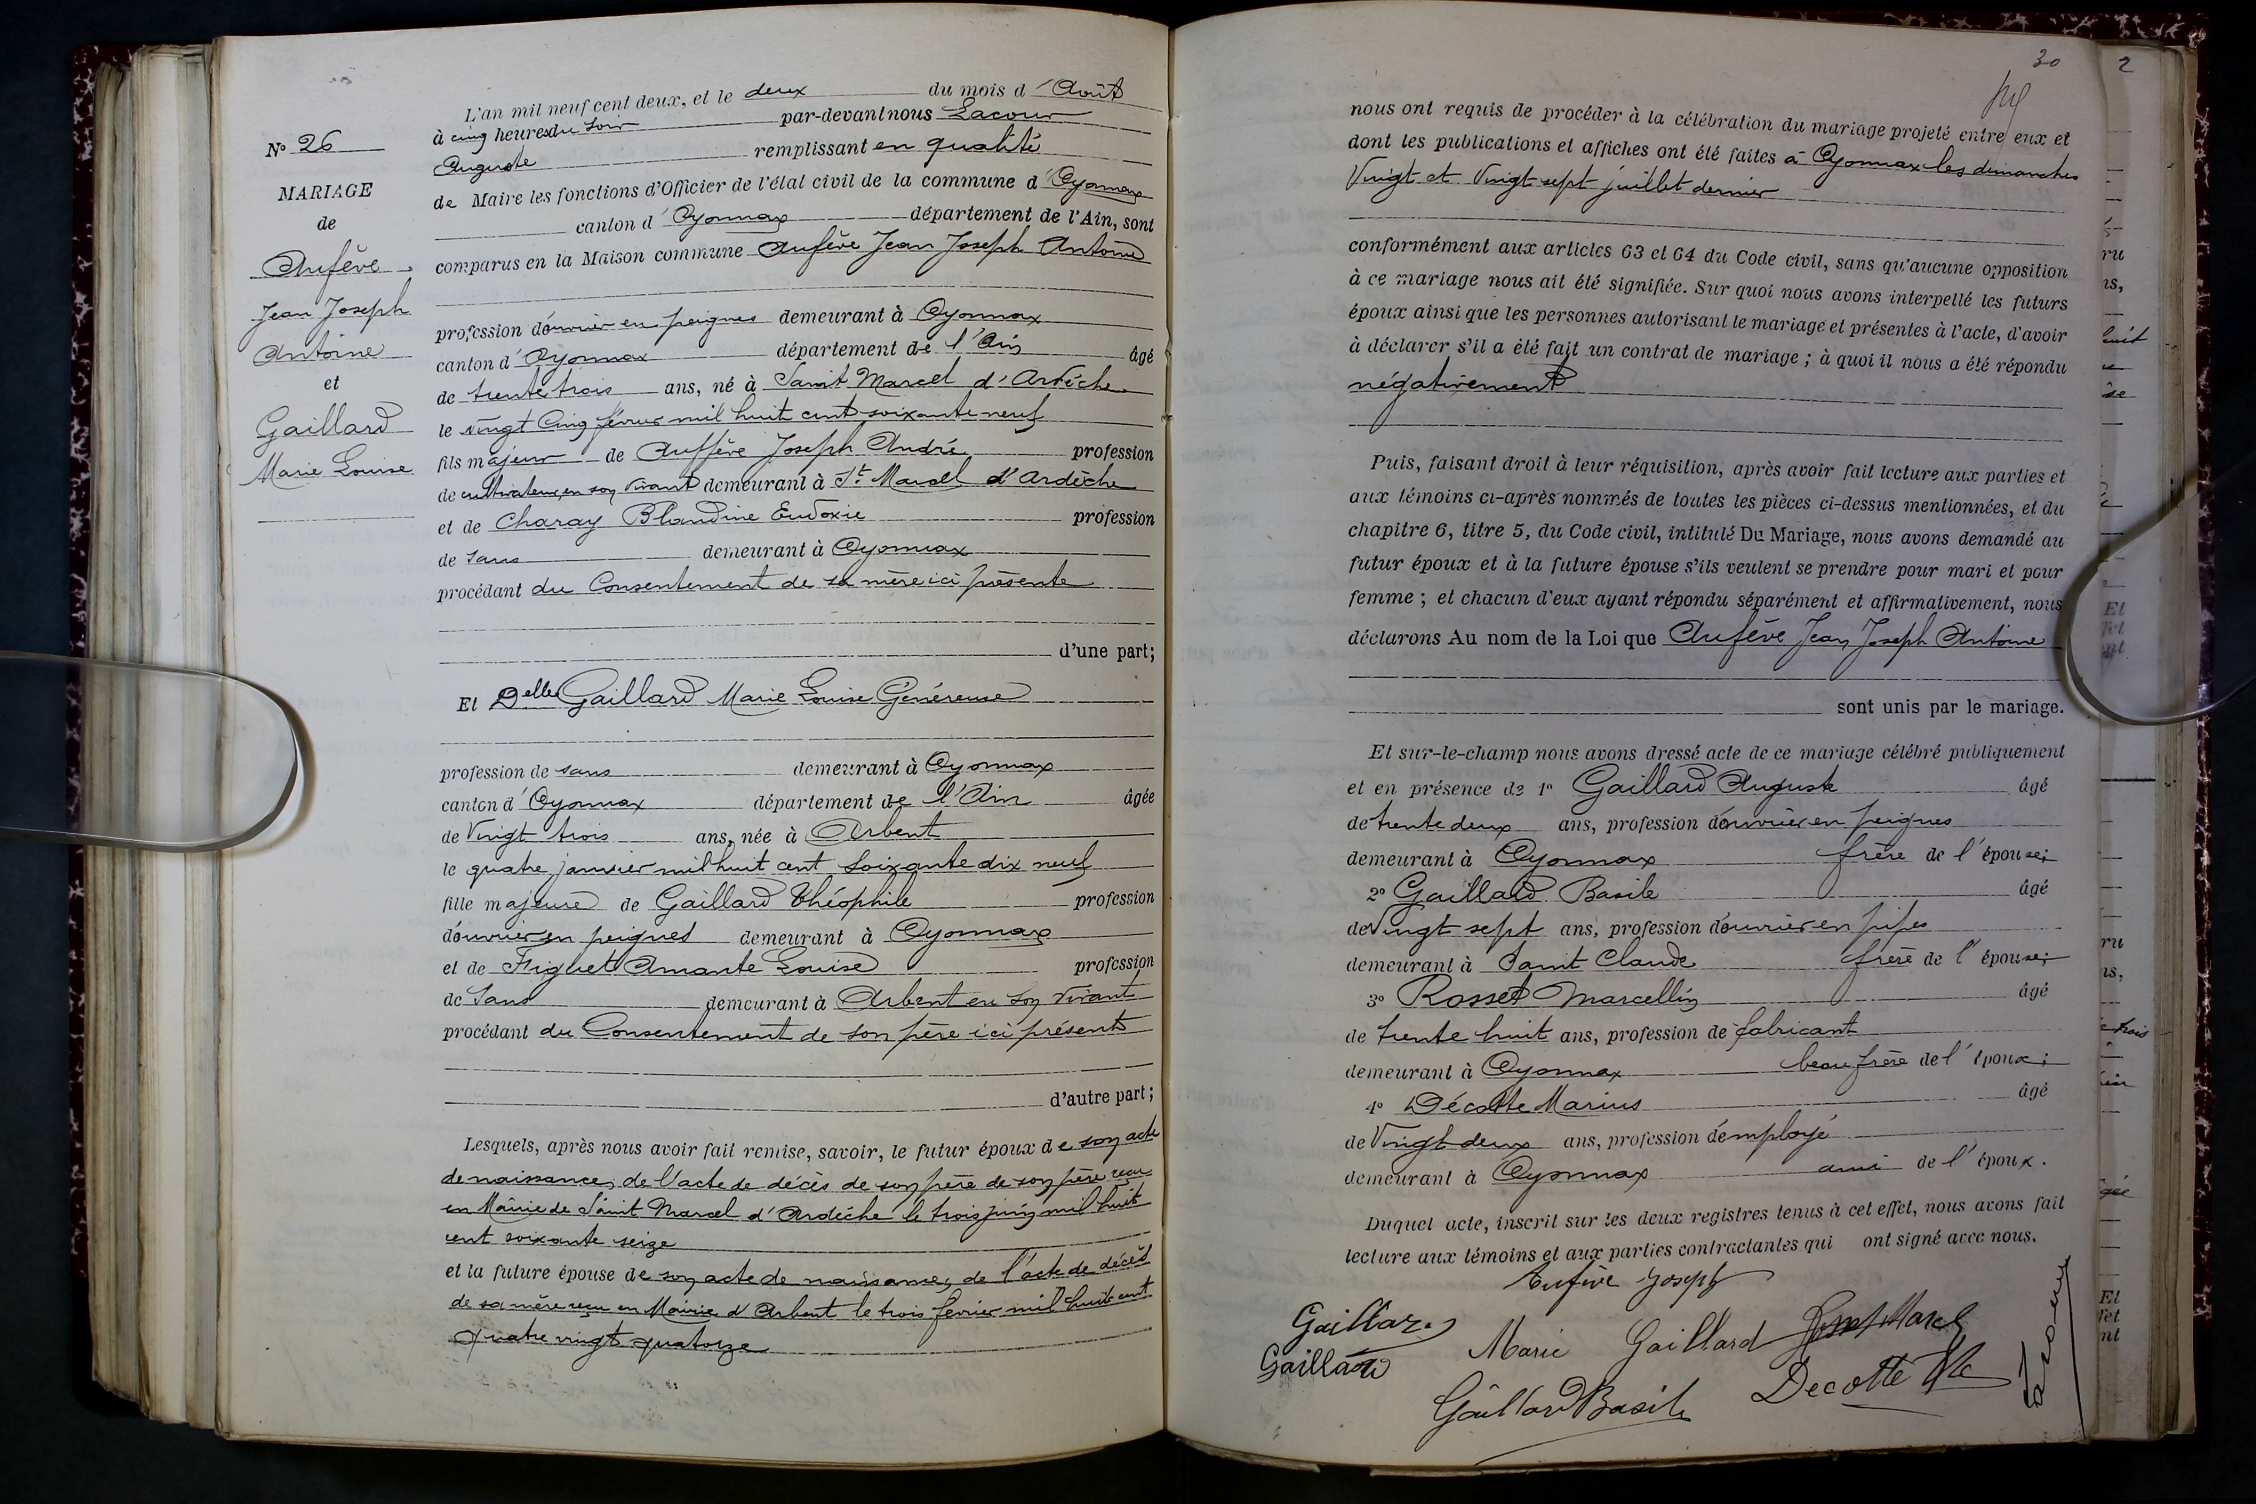 N° 26
MARIAGE
de
Aufève
Jean Joseph
Antoine
et
Gaillard
Marie Louise
L'an mil neuf cent deux, et le deux du mois d'Août
à cinq heures du soir par-devant nous Lacour
Auguste remplissant en qualité
de Maire les fonctions d'Officier de l'état civil de la commune d'Oyonnax
canton d'Oyonnax département de l'Ain, sont
comparus en la Maison commune Aufève Jean Joseph Antoine
profession d'ouvrier en peignes demeurant à Oyonnax
canton d'Oyonnax département de l'Ain âgé
de trente trois ans, né à Saint Marcel d'Ardèche
le vingt cinq février mil huit cent soixante neuf
fils majeur de Auffève Joseph André profession
de cultivateur, en son vivant demeurant à St Marcel d'Ardèche
et de Charay Blandine Eudoxie profession
de sans demeurant à Oyonnax
procédant du Consentement de sa mère ici présente
d'une part;
Et Delle Gaillard Marie Louise Généreuse
profession de sans demeurant à Oyonnax
canton d'Oyonnax département de l'Ain âgée
de Vingt trois ans, née à Arbent
le quatre janvier mil huit cent soixante dix neuf
fille majeure de Gaillard Théophile profession
d'ouvrier en peignes demeurant à Oyonnax
et de Figuet Amante Louise profession
de Sans demeurant à Arbent en son vivant
procédant du Consentement de son père ici présent
d'autre part;
Lesquels, après nous avoir fait remise, savoir, le futur époux de son acte
de naissance, de l'acte de décès de son père de son père reçu
en Mairie de Saint Marcel d'Ardèche le trois juin mil huit
cent soixante seize
et la future épouse de son acte de naissance, de l'acte de décès
de sa mère reçu en Mairie d'Arbent le trois février mil huit cent
quatre vingt quatorze
30
nous ont requis de procéder à la célébration du mariage projeté entre eux et
dont les publications et affiches ont été faites à Oyonnax les dimanches
Vingt et Vingt sept juillet dernier
conformément aux articles 63 et 64 du Code civil, sans qu'aucune opposition
à ce mariage nous ait été signifiée. Sur quoi nous avons interpellé les futurs
époux ainsi que les personnes autorisant le mariage et présentes à l'acte, d'avoir
à déclarer s'il a été fait un contrat de mariage ; à quoi il nous a été répondu
négativement
Puis, faisant droit à leur réquisition, après avoir fait lecture aux parties et
aux témoins ci-après nommés de toutes les pièces ci-dessus mentionnées, et du
chapitre 6, titre 5, du Code civil, intitulé Du Mariage, nous avons demandé au
futur époux et à la future épouse s'ils veulent se prendre pour mari et pour
femme ; et chacun d'eux ayant répondu séparément et affirmativement, nous
déclarons Au nom de la Loi que Aufève Jean Joseph Antoine
sont unis par le mariage.
Et sur-le-champ nous avons dressé acte de ce mariage célébré publiquement
et en présence de 1° Gaillard Auguste âgé
de trente deux ans, profession d'ouvrier en peignes
demeurant à Oyonnax frère de l'épouse;
2° Gaillard Basile âgé
de Vingt sept ans, profession d'ouvrier en pipes
demeurant à Saint Claude frère de l'épouse;
3° Rosset Marcellin âgé
de trente huit ans, profession de fabricant
demeurant à Oyonnax beau frère de l'époux;
4° Décotte Marius âgé
de Vingt deux ans, profession d'employé
demeurant à Oyonnax ami de l'époux.
Duquel acte, inscrit sur les deux registres tenus à cet effet, nous avons fait
lecture aux témoins et aux parties contractantes qui ont signé avec nous.
Aufève Joseph
Gaillard
Marie Gaillard Rosset Marc
Gaillard
Gaillard Basile
Decotte
Lacour
2